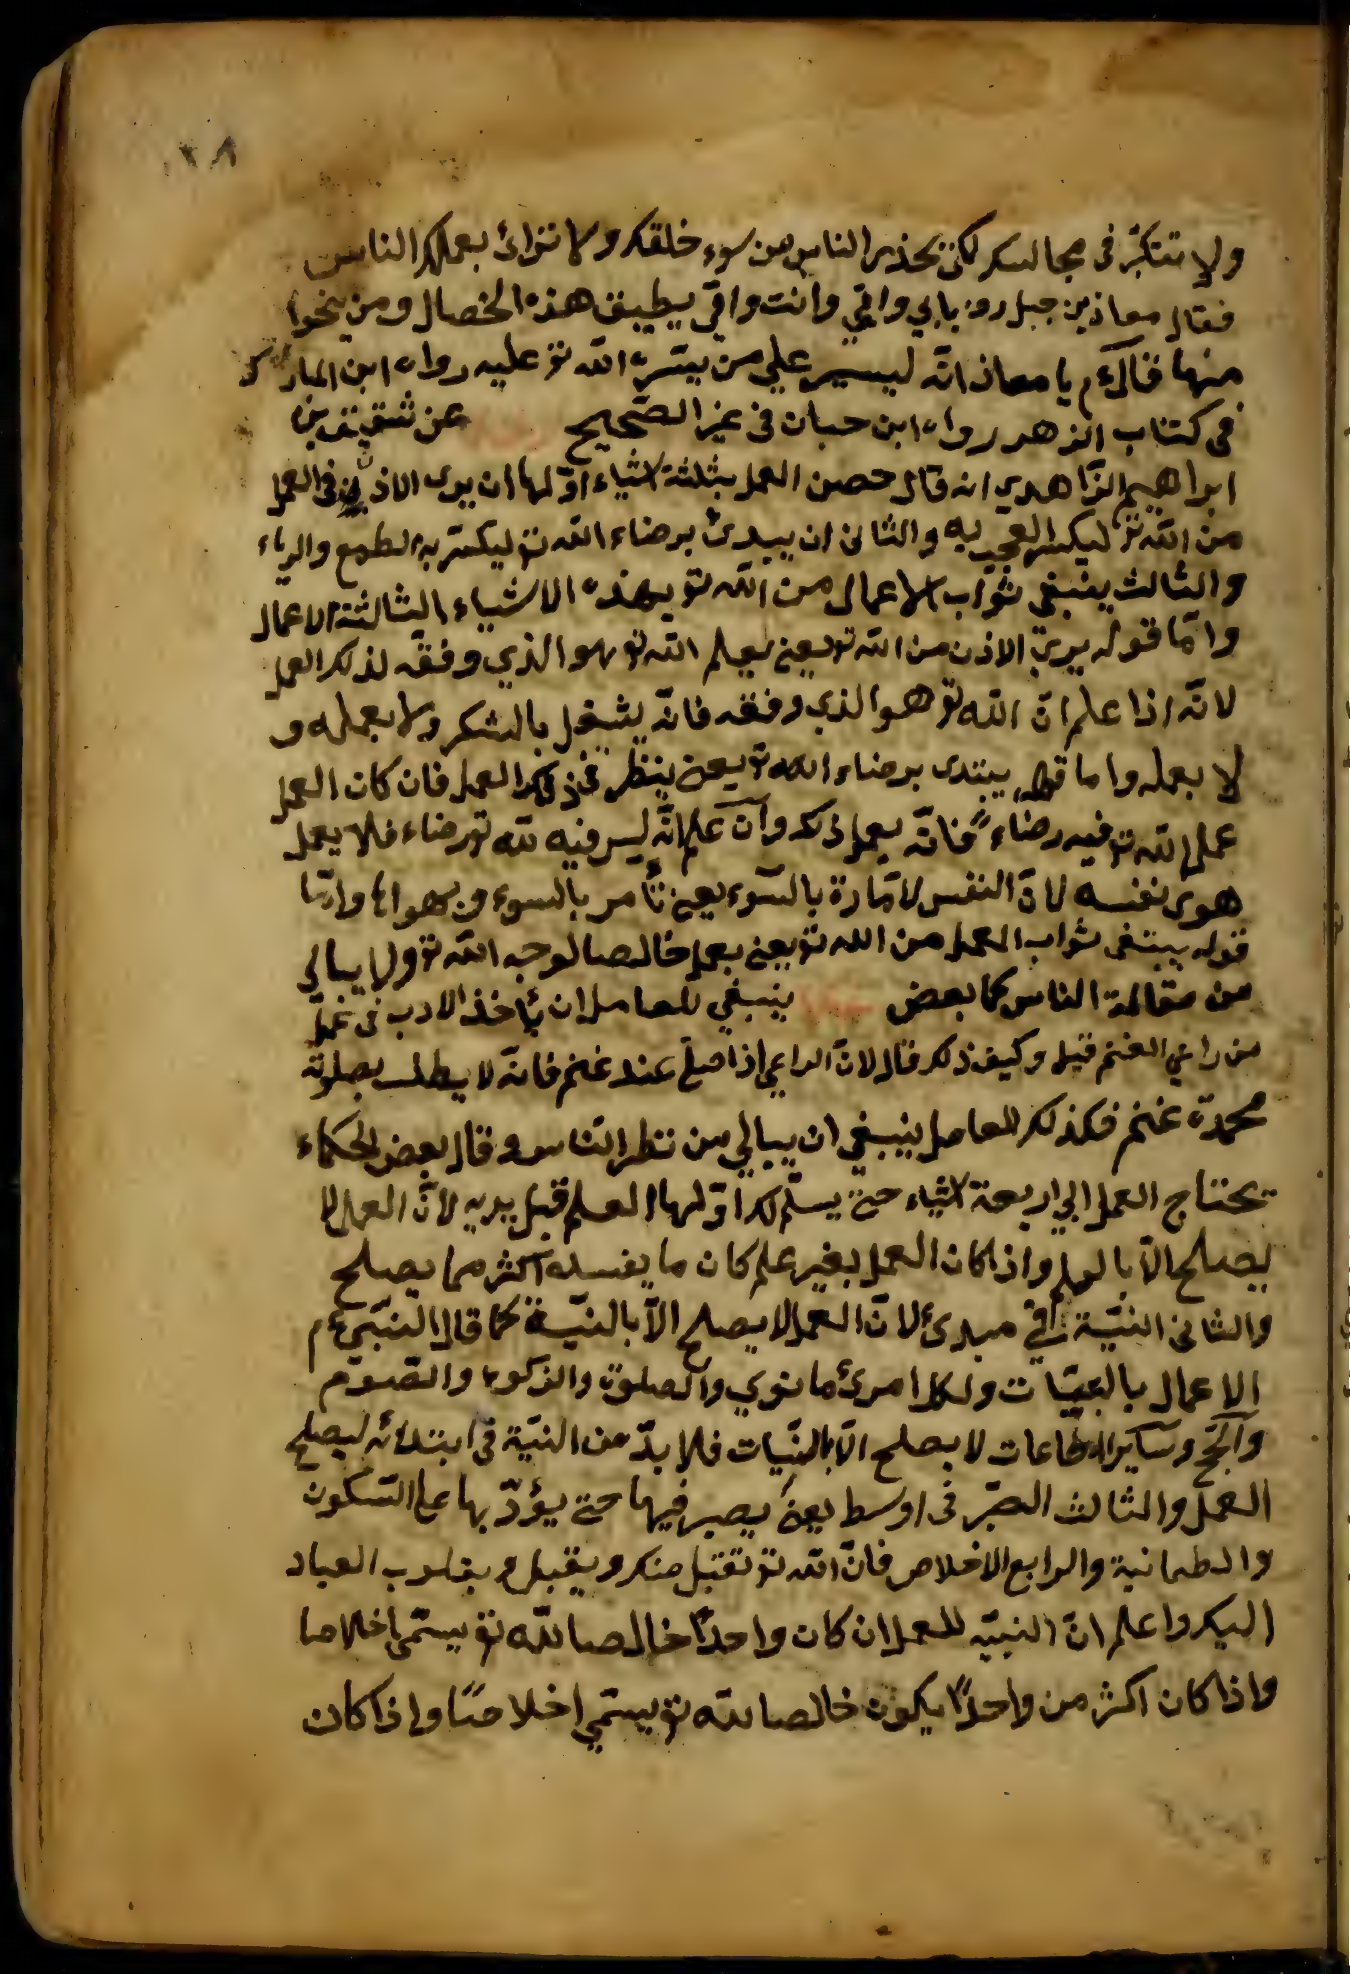 ٣٨
ولا تتكبّر فى مجالسك لكى تحذير الناس من سوء خلقك ولا تراىٔ بعملك الناس
فقال معاذ بن جبل رض بابي وامّي وانت وامّي يطيق هذه الخصال ومن ينجوا
منها فقال ءم يا معاذ انّه ليسير علي من يسّره اللّه تو عليه رواه ابن المبارك
فى كتاب الزهد رواه ابن حبان فى غير الصّحيح عن شقيق بن
ابراهيم الزّاهدي انه قال حصن العمل بثلثة اشياء اوّلها ان يرى الاذن فى العمل
من اللّه تو ليكسر العجب به والثانى ان يبدىٔ برضاء اللّه تو ليكسّر به الطمع والرياء
والثالث ينبغى ثواب الاعمال من اللّه تو بهذه الاشياء الثالثة الاعمال
وامّا قوله يري الاذن من اللّه تو يعنى يعلم اللّه تو هو الذي وفقّه لذلك العمل
لانّه اذا علم انّ اللّه تو هو الذى وفقه فانّه يشغل بالشكر ولا بعمله و
لا بعمله واما قوله يبتدى برضاء اللّه تو يعنى ينظر فى ذلك العمل فان كان العمل
عمل للّه تو فيه رضاءً فانّه يعمل ذلك وان علم انّه ليس فيه للّه تو رضاء فلا يعمل
هوى نفسه لانّ النفس لامّارة بالسّوء يعنى تأمر بالسوء و بهواها وامّا
قوله يبتغى ثواب العمل من اللّه تو يعنى بعمل خالصا لوجه اللّه تو ولا يبالى
من مقالة الناس كما بعض ينبغي للعامل ان يأخذ الادب فى عمله
من راعي الغنم قيل وكيف ذلك قال لانّ الراعي اذا صلّى عند غنم فانّه لا يطلب بصلوته
محمدة غنم فكذلك للعامل ينبغي ان يبالي من نظر النّاس و قال بعض الحكماء
يحتاج العمل الي اربعة اشياء حتى يسلّم لك اوّلها العلم قبل يديه لانّ العمل لا
يصلح الاّ بالعلم واذا كان العمل بغير علم كان ما يفسده اكثر مما يصلح
والثانى النيّة فى مبدىٔ لانّ العمل لا يصلح الاّ بالنيّة كما قال النبّي ءم
الاعمال بالنيّات ولكل امرىٔ ما نوي والصلوة والزكوة والصّوم
والحجّ وساير الطّاعات لا يصلح الاّ بالنيّات فلا بدّ من النيّة فى ابتدائه ليصلح
العمل والثالث الصّبر فى اوسط يعنى يصبر فيها حتى يؤدّ بها على السّكون
والطمانية والرابع الاخلاص فانّ اللّه تو تقبّل منك ويقبل و بقلوب العباد
اليك واعلم انّ النيّة للعمل ان كان واحدًا خالصا للّه تو يسمّى اخلاصا
واذا كان اكثر من واحدًا يكون خالصا للّه تو يسمّي اخلاصًا واذا كان